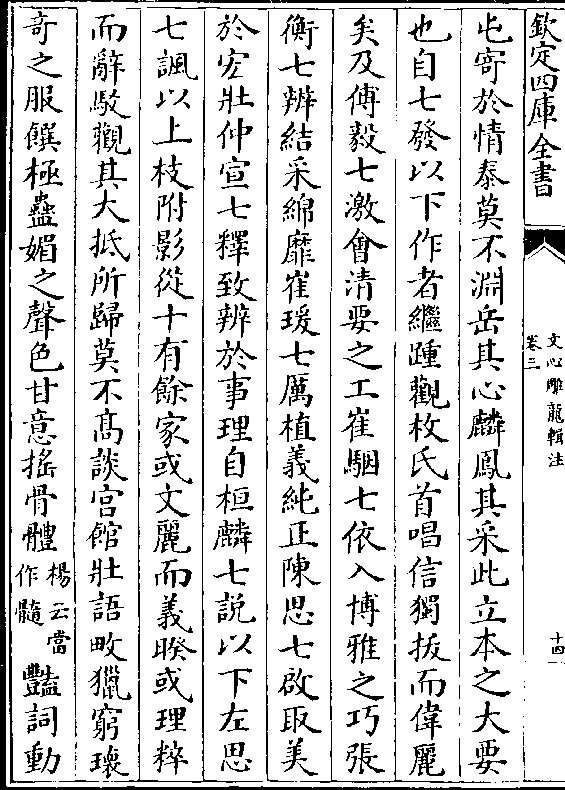 欽定四庫全書
文心雕龍輯注
卷三
十四
屯寄於情泰莫不淵岳其心麟鳳其采此立本之大要
也自七發以下作者繼踵觀枚氏首唱信獨拔而偉麗
矣及傅毅七激會清要之工崔駰七依入博雅之巧張
衡七辨結采綿靡崔瑗七厲植義純正陳思七啟取美
於宏壯仲宣七釋致辨於事理自桓麟七說以下左思
七諷以上枝附影從十有餘家或文麗而義暌或理粹
而辭駁觀其大抵所歸莫不髙談宮館壯語畋獵窮瓌
奇之服饌極蠱媚之聲色甘意搖骨體楊云當作髓豔詞動